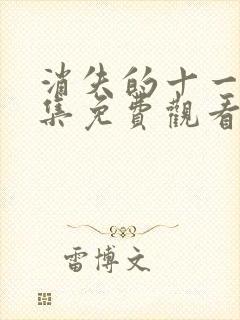 消失的十一
集免費觀看
雷博文